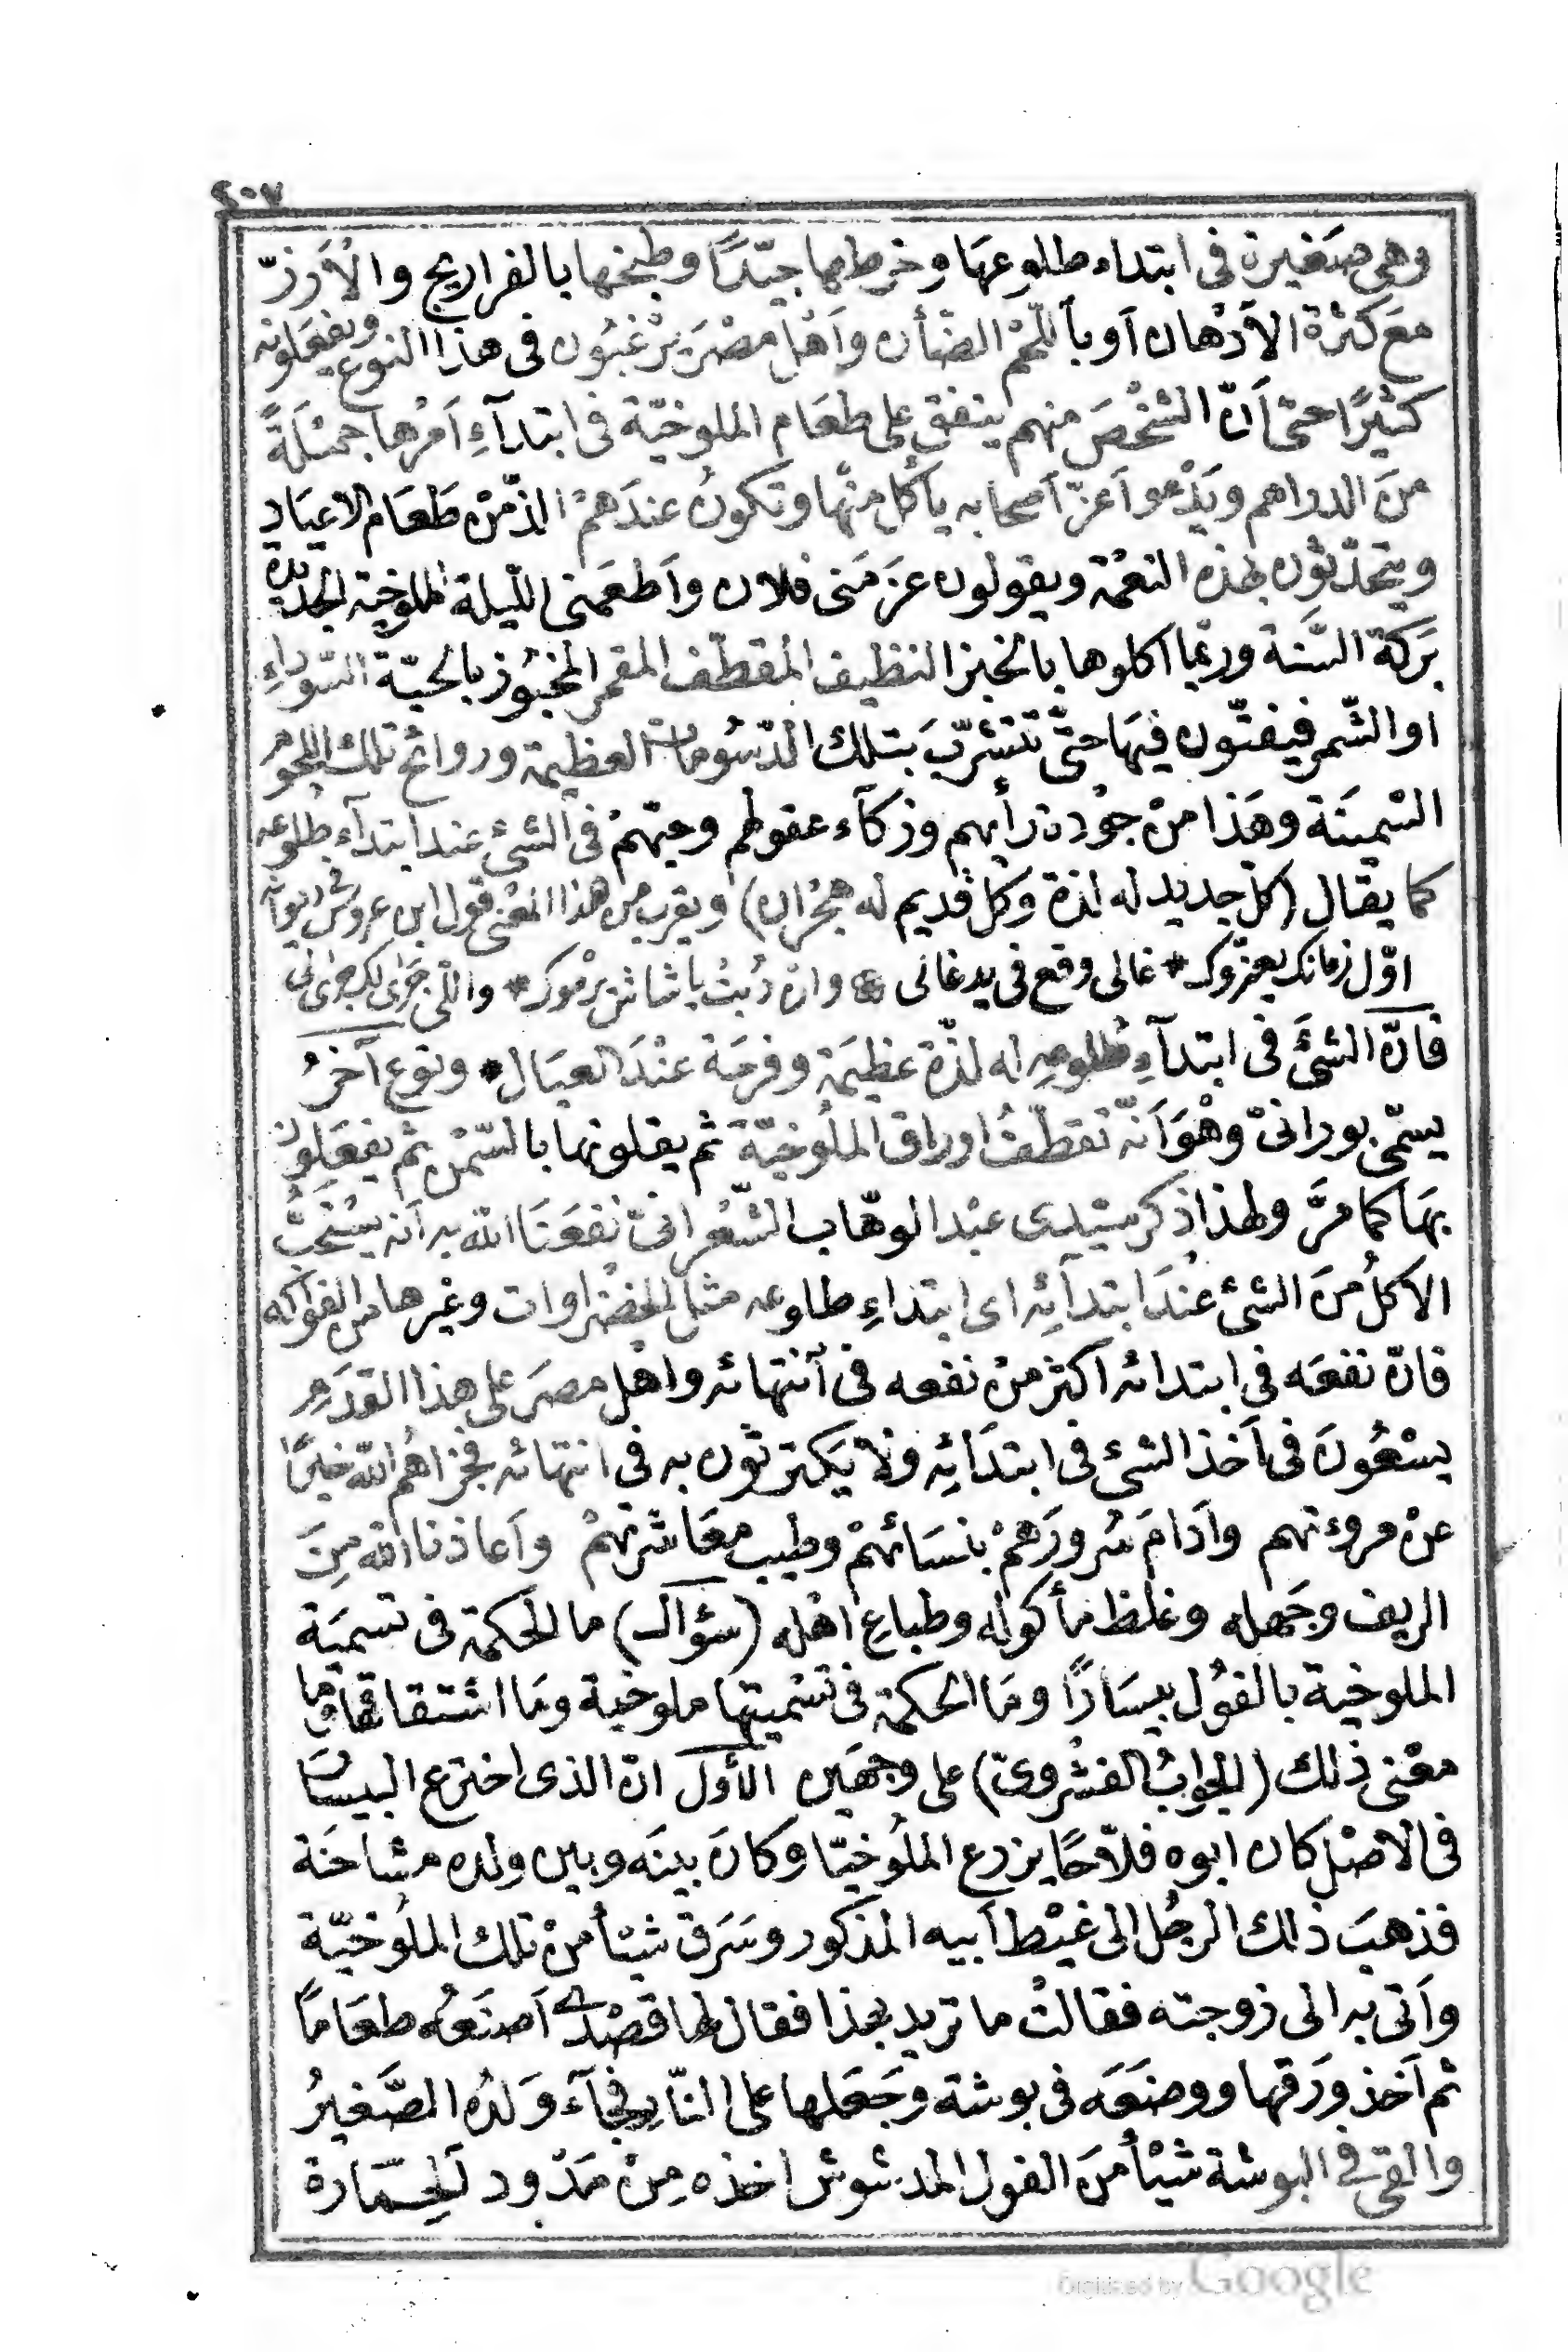 ٢٠٧
وهى صَغيرة فى ابتداء طلوعهَا وخرطها جيّدًا وطبخها بالفراريج والأَرزّ
معَ كثْرة الأَدْهان أو بآللّحْم الضّأن وآهْل مصْرَ يرْغبُون فى هذا النوع ويفعَلونه
كثيرًا حتىّ أنّ الشخْصَ منهم ينفق على طعَام الملوخيّة فى ابتدآءِ آمْرها جمْلَةً
منَ الدراهم ويَدْعوا آعزّ آصحابه يأكل منْهَا وتكونُ عندَهمْ الذّ مْن طَعَام الاعيَادِ
ويتحدّثوُن بهذه النعْمة ويقولون عزَمَنى فلان وآطعَمنى اللّيلة الملوخية الجديدة
بَركة السَّنَة وربّما اكلوها بالخبز النظيف المقطّف المقمر المخْبُوز بالحبّة السّوداءِ
او الشّمر فيفتّون فيهَا حتىّ تتشرّبَ بتلك الدّسُومات العظيمة وروائح تلك اللحوم
السّمينَة وهَذا منْ جوُدة رأيهم وذكآء عقولهم وحبّهمْ فى الشئ عند ابتدآء طلوعه
كما يقال (كلّ جديد له لذة وَكلّ قديم له هجْران) ويقرب من هذا المعْنى قول ابن عروش فى ديوآنه
اوّل زمانك يعزّوك * غالى وقع فى يد غانى وان دُبتْ ياشاش يرْموك * واللّى جَرَى لك جرَى لى
فانّ الشئَ فى ابتدآءِ طلوعهِ له لذّة عظيمَة وفرحَة عنْدَ العيَال * ونوع آخرُ
يسمّى بورانىّ وهْوَ آنّه تقطّفُ اوراق الملُوخيّة ثم يقلونها بالسّمْن ثم يفعَلون
بهَا كما مرَّ ولهذا ذكر سيّدى عبْد الوهّاب الشّعْرانىّ نفعَنَا الله به آنه يسْتحَبُّ
الاكلُ منَ الشئ عنْدَ ابتدآئِه اى ابتداءِ طلوعه مثل الخضْراوات وغيْرها من الفواكه
فانّ نفعَه فى ابتدائه اكثر منْ نفعه فى آنتهائه واهْل مصرَ على هذا القدَمِ
يسْعُونَ فى آخذ الشئ فى ابتدَائِه ولا يَكترثوُن به فى انتهائه فجزاهُم الله خيرًا
عنْ مروءتهم وآدَامَ سُرورَهمْ بنسَائهمْ وطيب معَاشرَتهمْ وآعاذنا الله مِنَ
الريف وجَهله وغلظ مأكوله وطباعِ اهْله (سؤال) ما الحكمة فى تسميَة
الملوخية بالفوُل بيسَارًا ومَا الحكمة فى تسْميتها ملوخية ومَا اشتقاقها وما
معْنى ذلك (الجوابُ الفشروىّ) على وجهَين الأوّل انّ الذى اخترع البيسَار
فى الاصْل كان ابوه فلاّحًا يزرع الملُوخيّا وكانَ بينَه وبين ولده مشاحنَة
فذهبَ ذلك الرجُل الى غيْط آبيه المذكور وسَرق شيئاً منْ تلك الملُوخيّة
وآتى به الى زوجته فقالتْ ما تريد بهذا فقال لها قصْدى آصنَعُه طعَامًا
ثم آخذ وَرَقها ووضعَه فى بوشة وجَعَلها على النّارِ فجآءَ وَلدُه الصَّغيرُ
وآلقى فى البوشة شيْئاً منَ الفول المدشوش اخذه مِنْ مَدْود آلحِمّارة